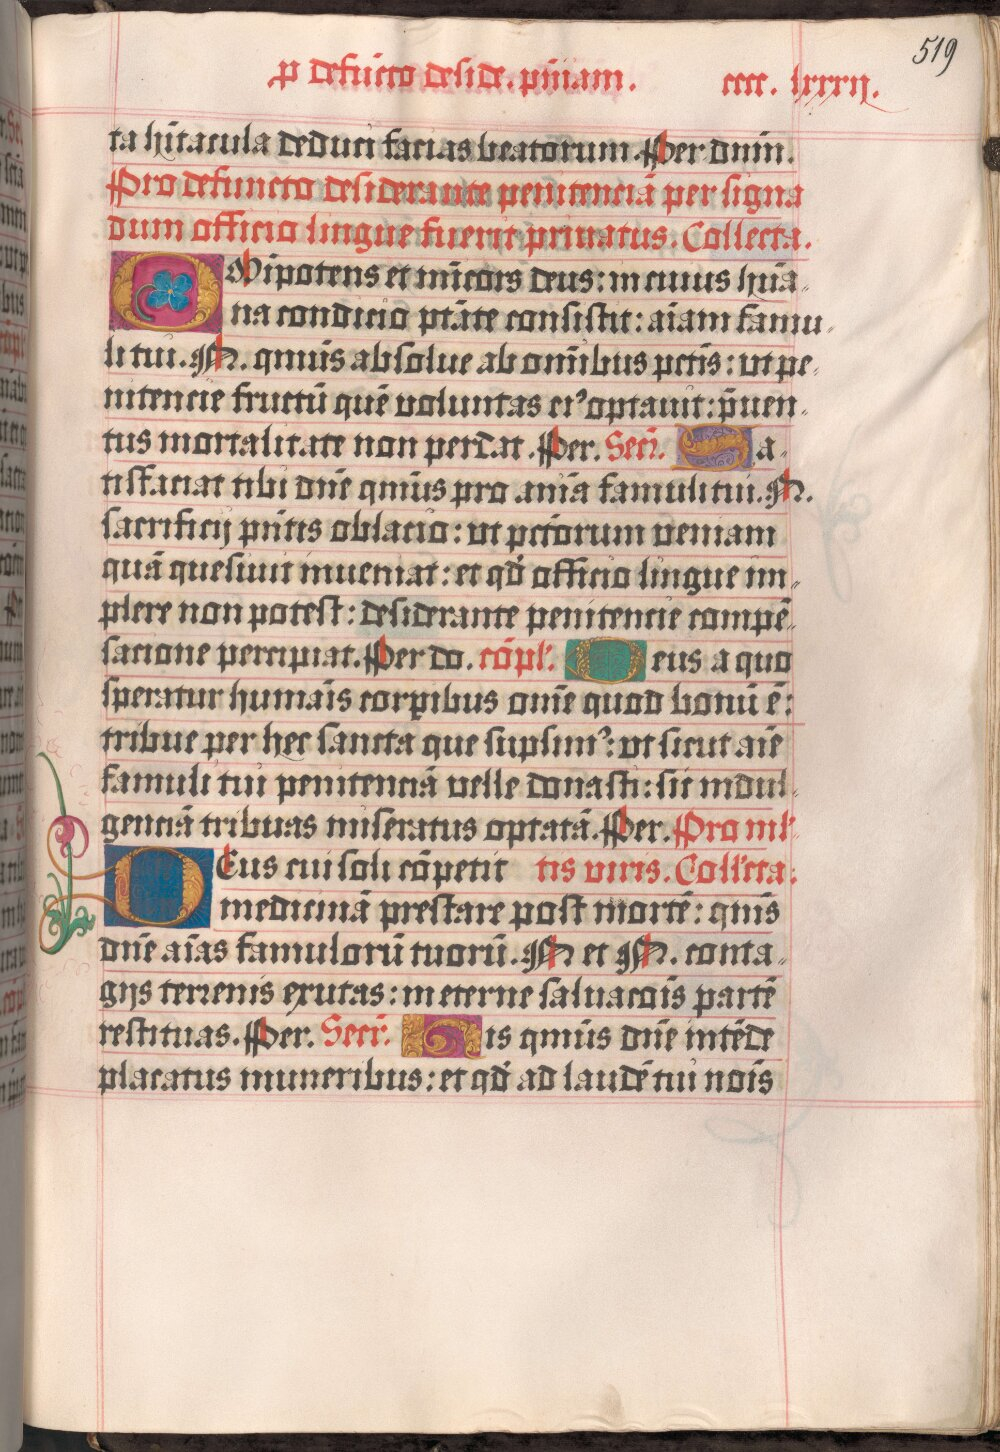 519
p defūcto deside. pn̄iam. cccc. lxxxij.
ta hītacula deduci facias beatorum. Per dnm̄.
Pro defuncto desiderante penitenciā per signa
dum officio lingue fuerit priuatus. Collecta.
OMīpotens et mīcors deus: in cuius huā-
na condicio ptāte consistit: aīam famu-
li tui. N. qm̄us absolue ab om̄ibus pctīs: ut pe-
nitencie fructū quē voluntas ei⁹ optauit: p̄uen-
tus mortalitate non perdat. Per. Secr̄. Sa-
tisfaciat tibi dn̄e qm̄us pro anīa famuli tui. N.
sacrificij pn̄tis oblacio: ut pctōrum ueniam
quā quesiuit inueniat: et qd̄ officio lingue im-
plere non potest: desiderante penitencie compē-
sacione percipiat. Per do. cōpl'. Deus a quo
speratur humaīs corpibus om̄e quod bonū ē:
tribue per hec sancta que supsim⁹: ut sicut aīe
famuli tui penitenciā velle donasti: sic indul-
genciā tribuas miseratus optatā. Per. Pro mil'-
DEus cui soli cōpetit tis viris. Collecta.
medicinā prestare post mortē: qm̄s
dn̄e aīas famulorū tuorū. N et N. conta-
gijs terrenis exutas: in eterne saluacōis partē
restituas. Per. Secr̄. His qm̄us dn̄e intēde
placatus muneribus: et qd̄ ad laudē tui noīs